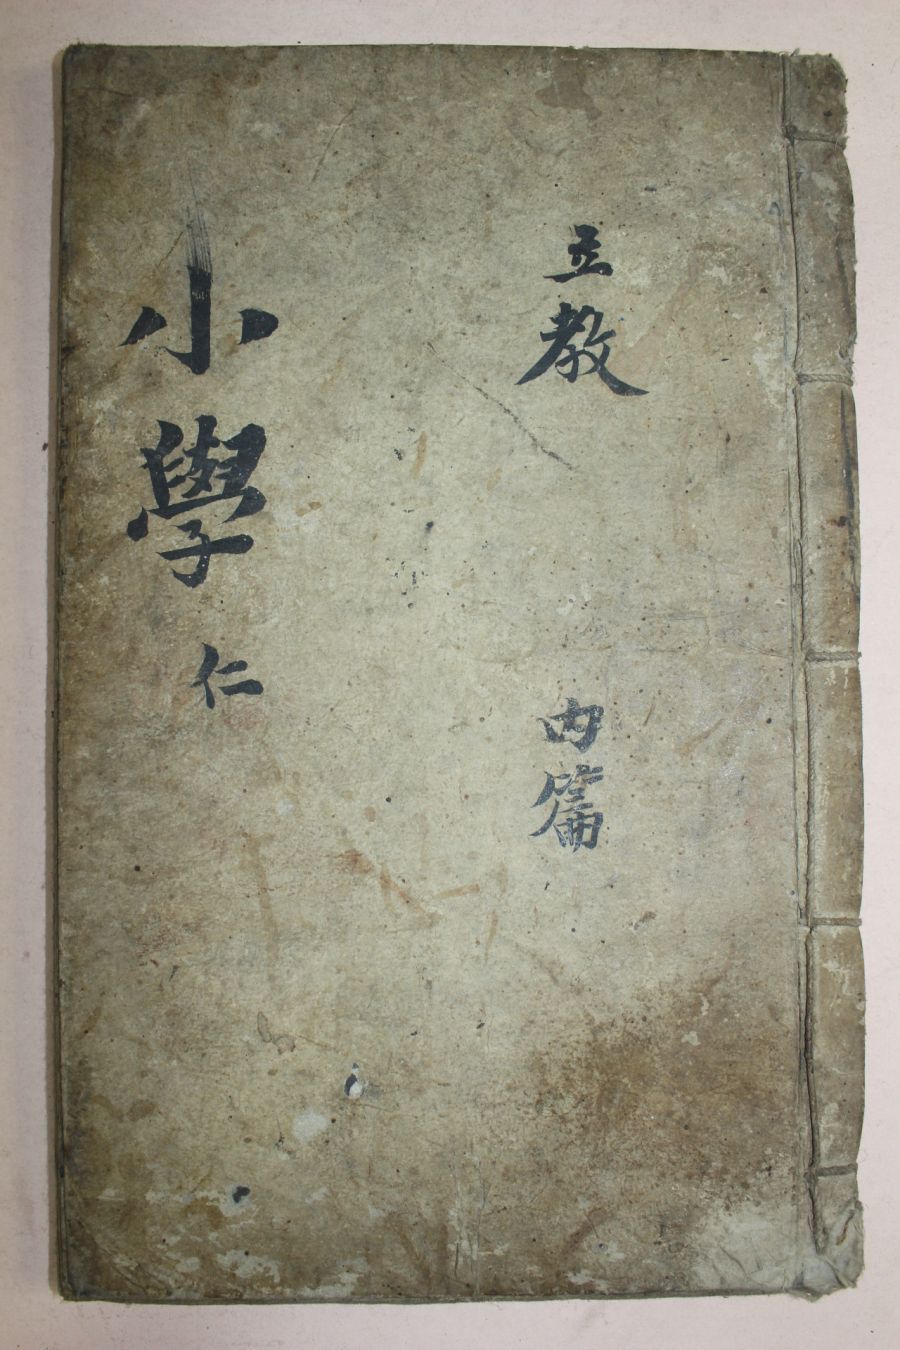 立教
內篇
小學 仁